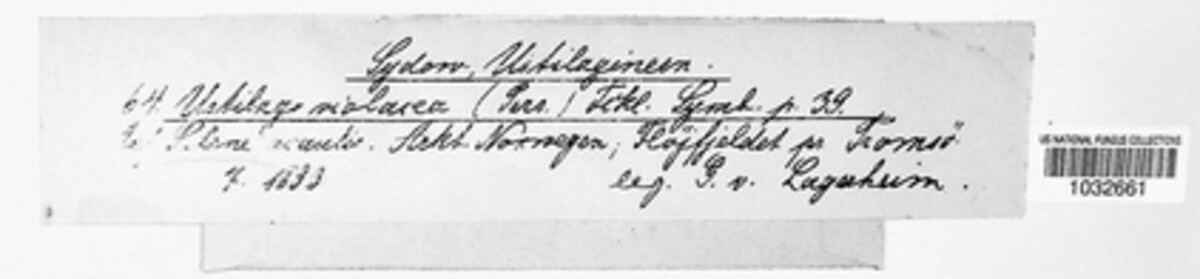 Sydow, Ustilagineen.
64. Ustilago violacea (Pers.) Fckl. Symb. p. 39.
Silene acaulis. Arkt. Norwegen, Flöjfjeldet pr Tromsö
7. 1893 leg. G. v. Lagerheim.
US NATIONAL FUNGUS COLLECTIONS
1032661